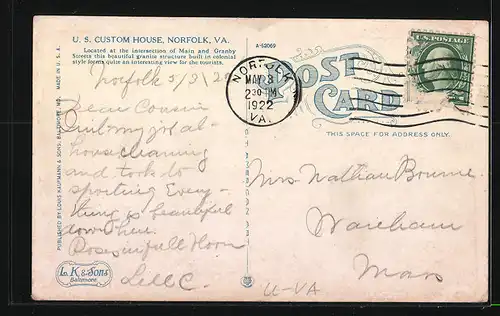 U. S. CUSTOM HOUSE, NORFOLK, VA.
Located at the intersection of Main and Granby
Streets this beautiful granite structure built in colonial
style forms quite an interesting view for the tourists.
A-63069
POST
CARD
THIS SPACE FOR ADDRESS ONLY.
NORFOLK
2 30 PM
1922
VA.
U.S. POSTAGE
PUBLISHED BY LOUIS KAUFMANN & SONS, BALTIMORE, MD.
MADE IN U. S. A.
Norfolk 5/3/22
Dear Cousin
my job at
housecleaning
and took to
sporting Every-
thing is beautiful
down here.
Roses in full bloom
L. K & Sons
Baltimore
Mrs Nathan Bourne
Wareham
Mass
U-VA